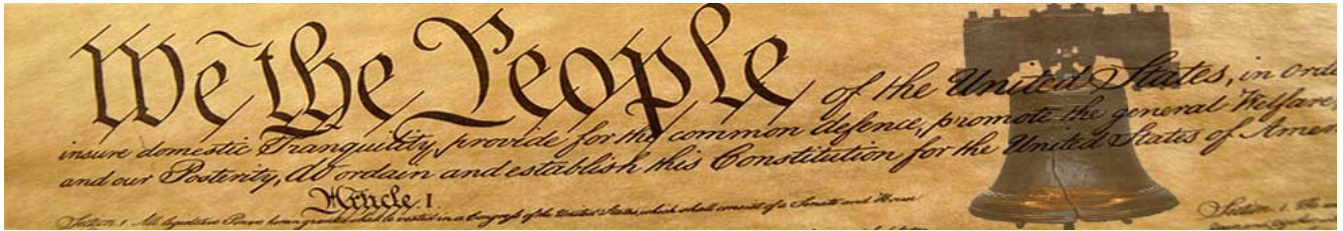 We the People of the United States, in Orde
insure domestic Tranquility, provide for the common defence, promote the general Welfare
and our Posterity, do ordain and establish this Constitution for the United States of Amer
Article. I.
Section. 1. All legislative Powers herein granted shall be vested in a Congress of the United States, which shall consist of a Senate and House
Section. 1.